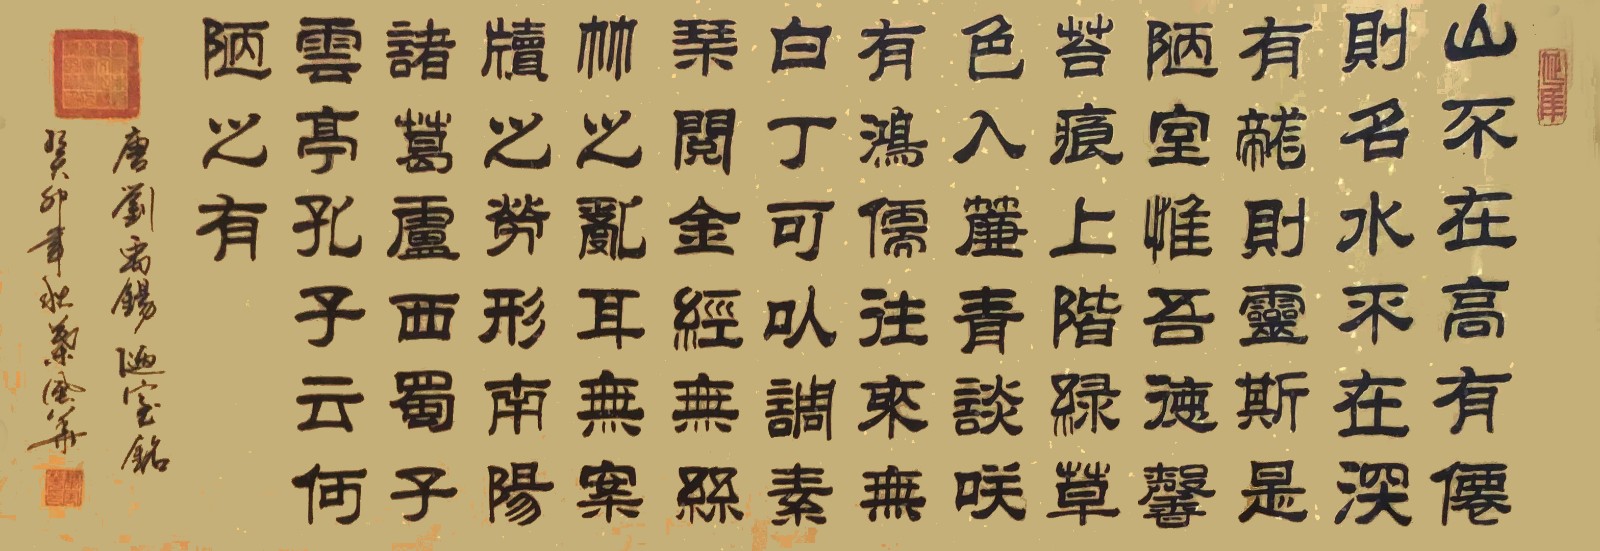 山不在高有僊
則名水不在深
有龍則靈斯是
陋室惟吾德馨
苔痕上階緑草
色入簾青談咲
有鴻儒往來無
白丁可㕥調素
琴閱金經無絲
竹之亂耳無案
牘之勞形南陽
諸葛廬西蜀子
雲亭孔子云何
陋之有
唐劉禹錫陋室銘
癸卯年秋